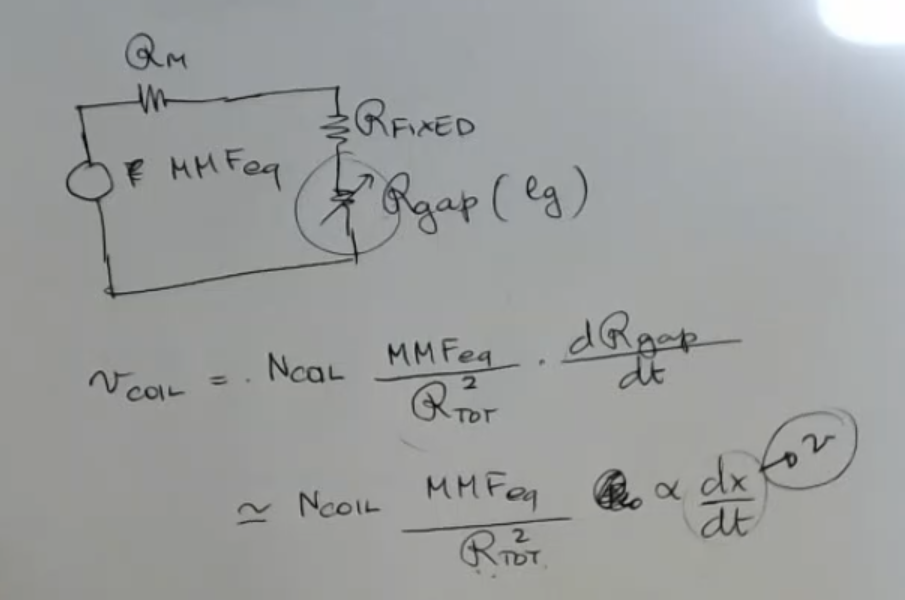 ℛM
ℛFIXED
MMFeq
ℛgap (lg)
vCOIL = . NCOIL MMFeq / ℛ²TOT · dℛgap / dt
≃ NCOIL MMFeq / ℛ²TOT ∝ dx / dt → v